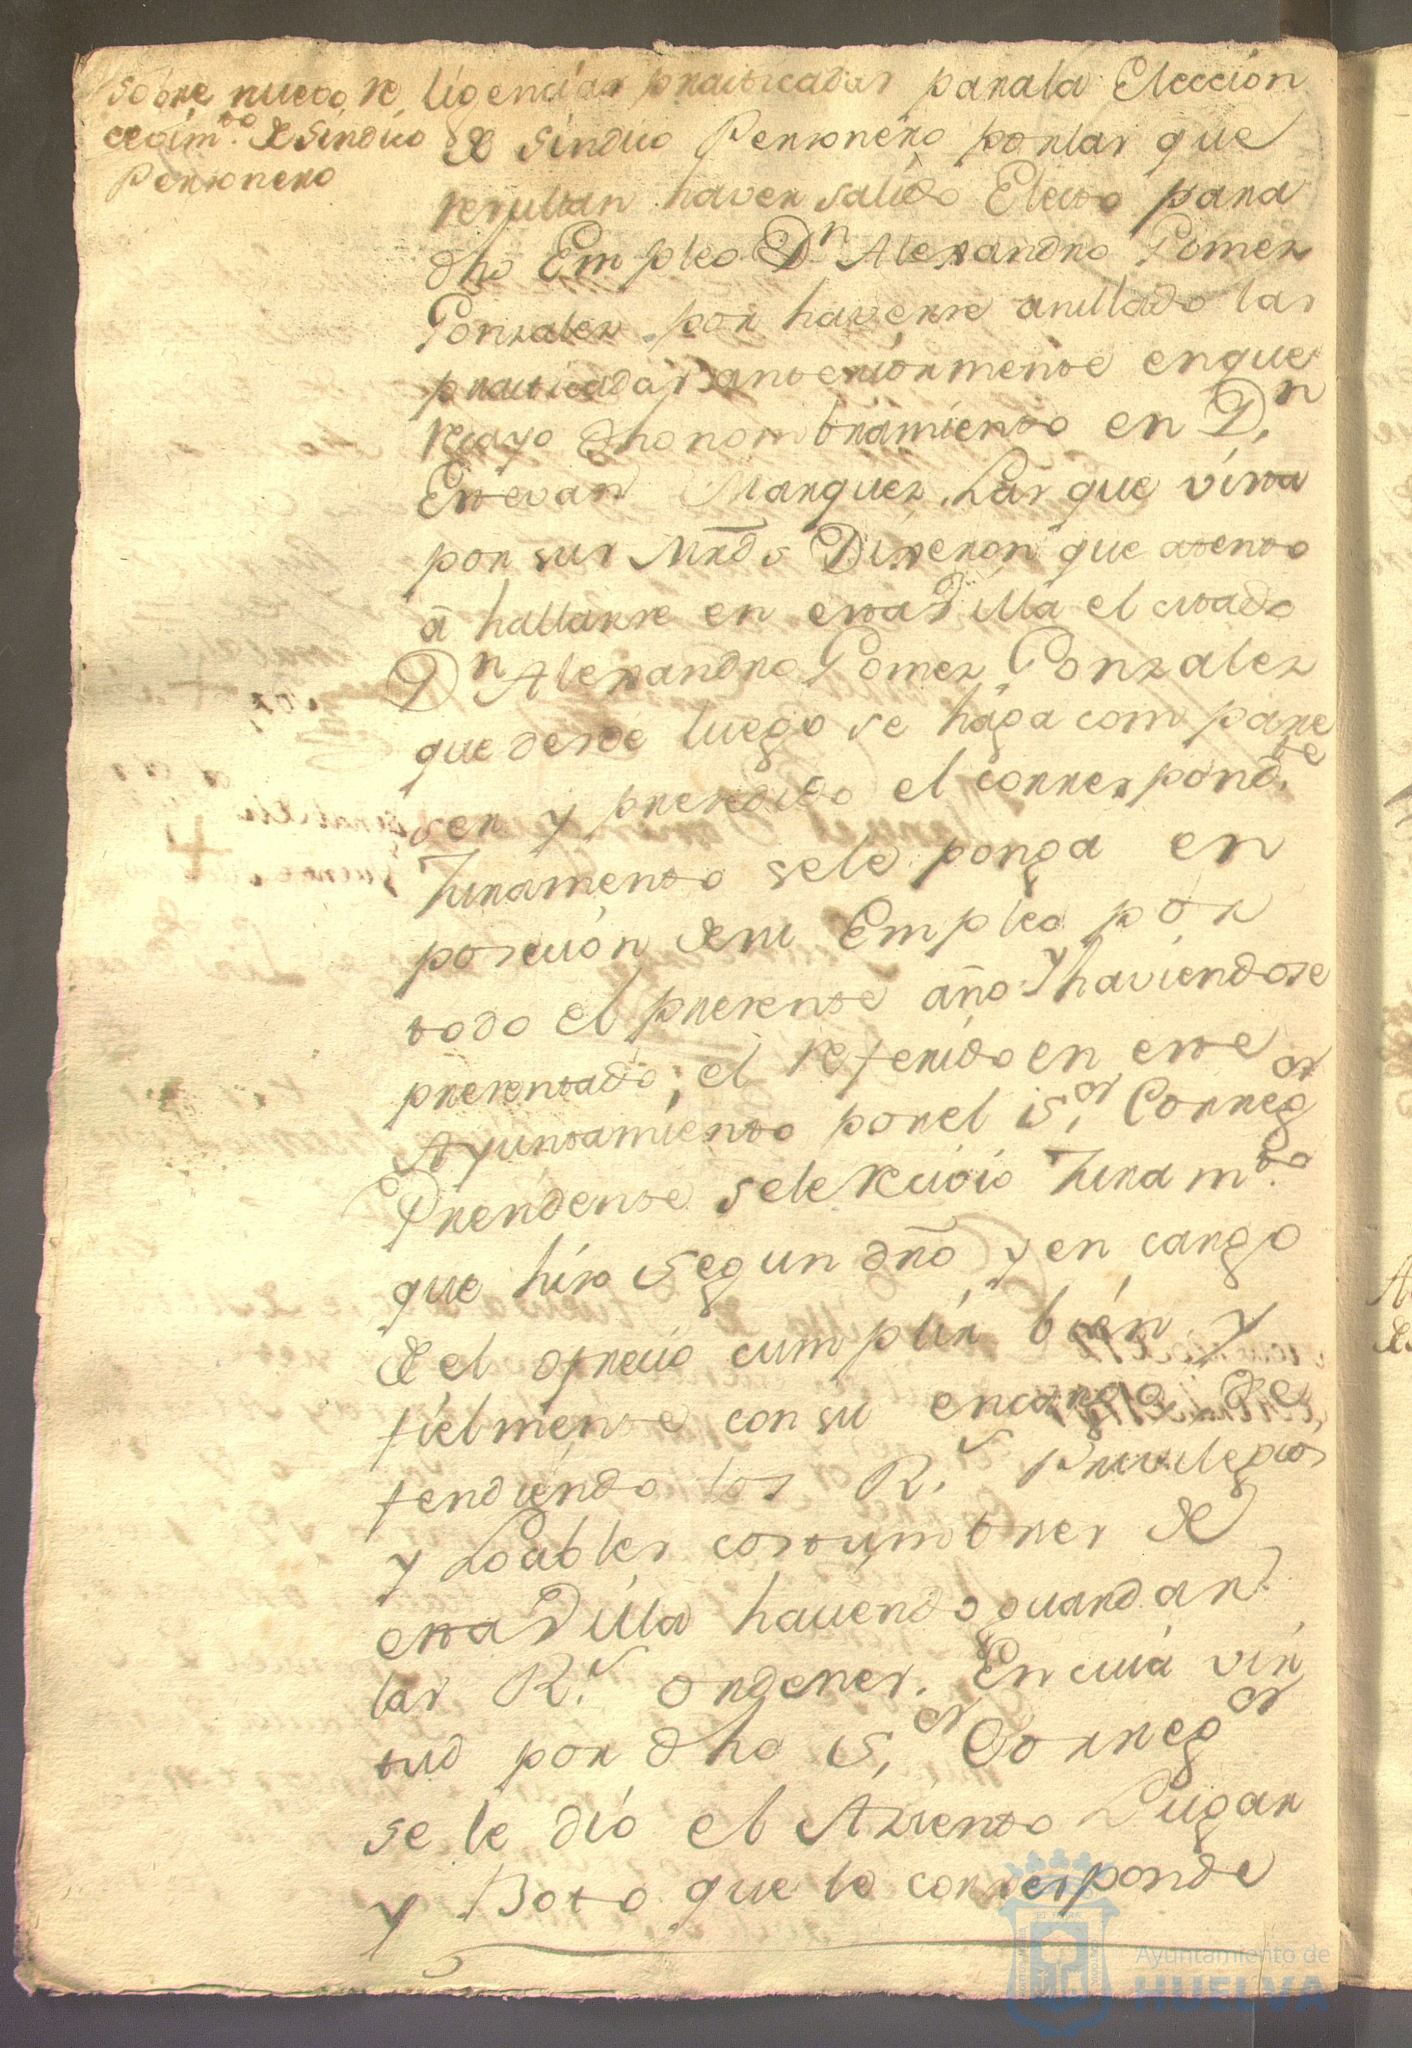 Sobre nuevo re
cevim.to de Sindico
Personero
ligencias practicadas para la Eleccion
de Sindico Personero por las que
resultan haver salido Electo para
dho Empleo Dn Alexandro Gomez
Gonzalez por haverse anullado las
practicadas anteriormente en que
recayo dho nombramiento en Dn
Estevan Marquez. Las que vista
por sus Mrds Dixeron que atento
a hallarse en esta Villa el citado
Dn Alexandro Gomez Gonzalez
que desde luego se haga compare
ser y presedido el correspond.te
Juramento se le ponga en
posecion de su Empleo por
todo el presente año y haviendose
presentado; el referido en este
Ayuntamiento por el S.or Correg.or
Prendente se le recivio Juram.to
que hizo segun dro y en cargo
de el ofrecio cumplir bien y
fielmente con su encargo De
fendiendo los R.s Privilegios
y Loables costumbres de
esta Villa haciendo guardar
las R.s ordenes. En cuia vir
tud por dho S.or Correg.or
se le dió el Aziento Lugar
y Boto que le corresponde
Ayuntamiento de
HUELVA